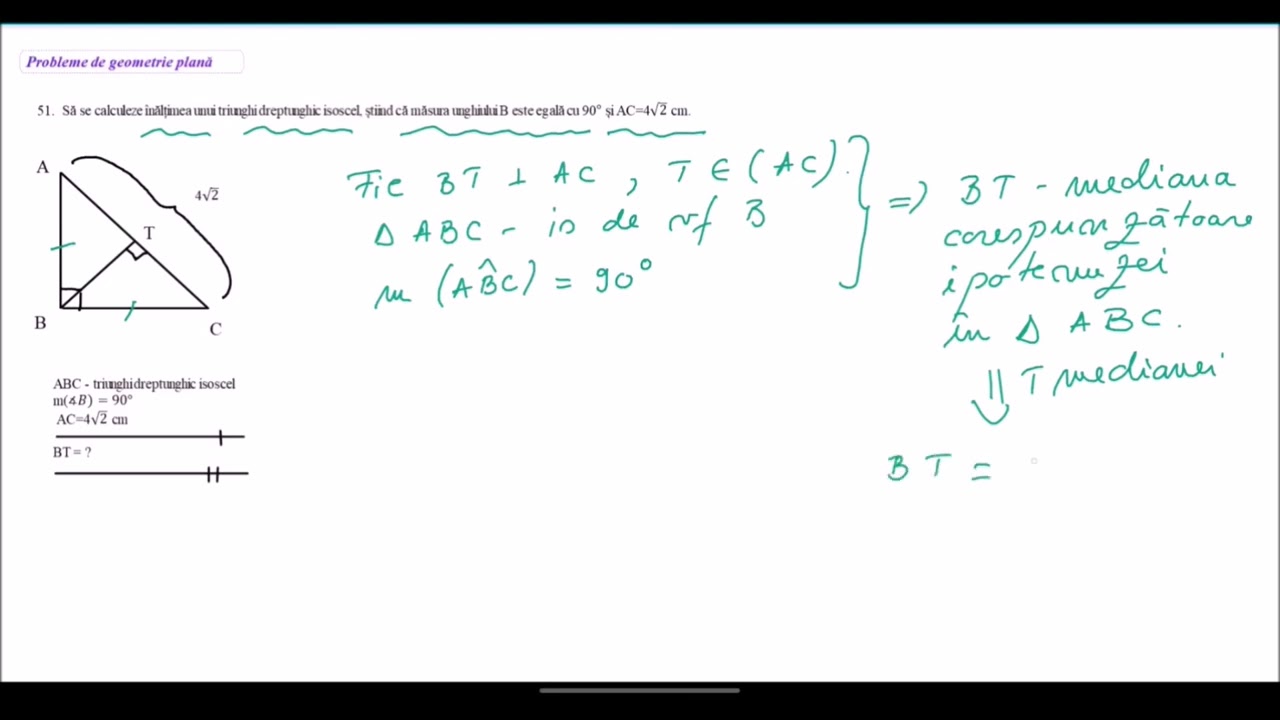 Probleme de geometrie plană
51. Să se calculeze înălțimea unui triunghi dreptunghic isoscel, știind că măsura unghiului B este egală cu 90° și AC=4√2 cm.
A
4√2
T
B
C
Fie BT ⊥ AC , T ∈ (AC).
Δ ABC - is de vf B
m (AB̂C) = 90°
=> BT - mediana
corespunzătoare
ipotenuzei
în Δ ABC.
⇓ T medianei
BT =
ABC - triunghi dreptunghic isoscel
m(∢B) = 90°
AC=4√2 cm
BT = ?